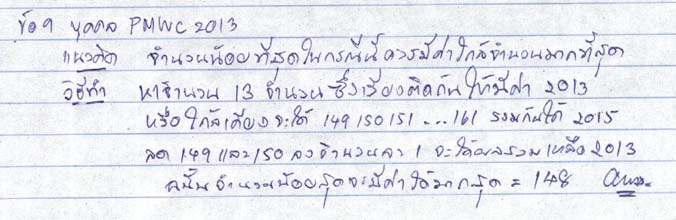 ข้อ 9 บุคคล PMWC 2013
แนวคิด จำนวนน้อยที่สุดในกรณีนี้ ควรมีค่าใกล้จำนวนมากที่สุด
วิธีทำ หาจำนวน 13 จำนวน ซึ่งเรียงติดกันให้มีค่า 2013
หรือใกล้เคียงจะได้ 149 150 151 ... 161 รวมกันได้ 2015
ลด 149 และ 150 ลงจำนวนละ 1 จะได้ผลรวมเหลือ 2013
ฉนั้นจำนวนน้อยสุดจะมีค่าได้มากสุด = 148 Ans.